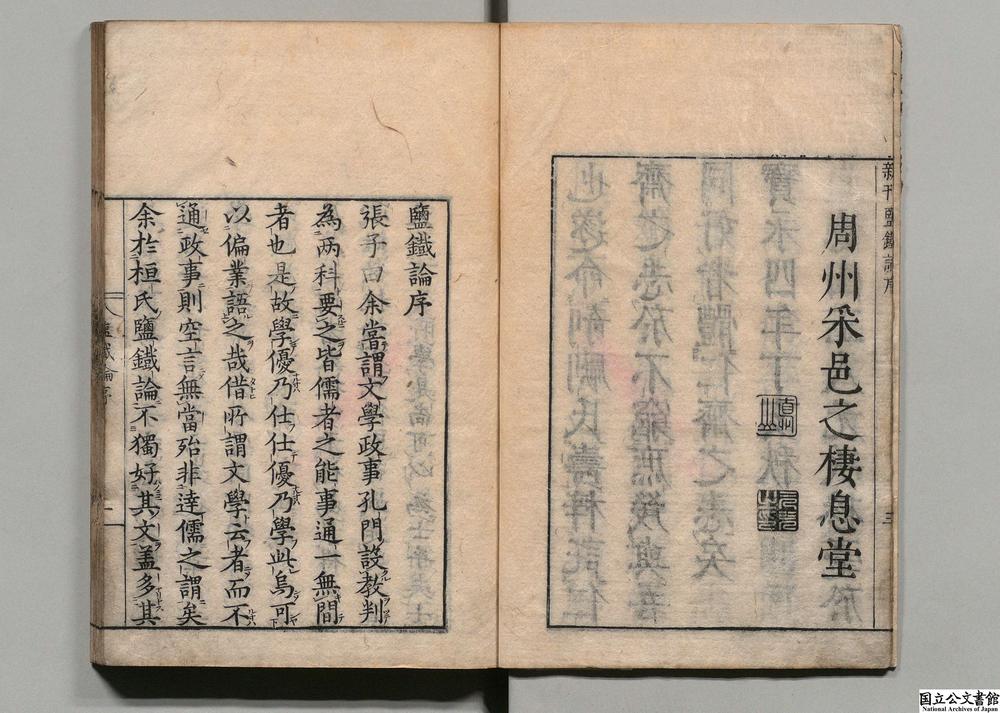 新刊鹽鐵論序
周州采邑之棲息堂
三
鹽鐵論序
張子曰余嘗謂文學政事孔門設教判
為兩科要之皆儒者之能事通一無間
者也是故學優乃仕仕優乃學此烏可
以偏業語之哉借所謂文學云者而不
通政事則空言無當殆非達儒之謂矣
余於桓氏鹽鐵論不獨好其文蓋多其
鹽鐵論序
一
国立公文書館
National Archives of Japan